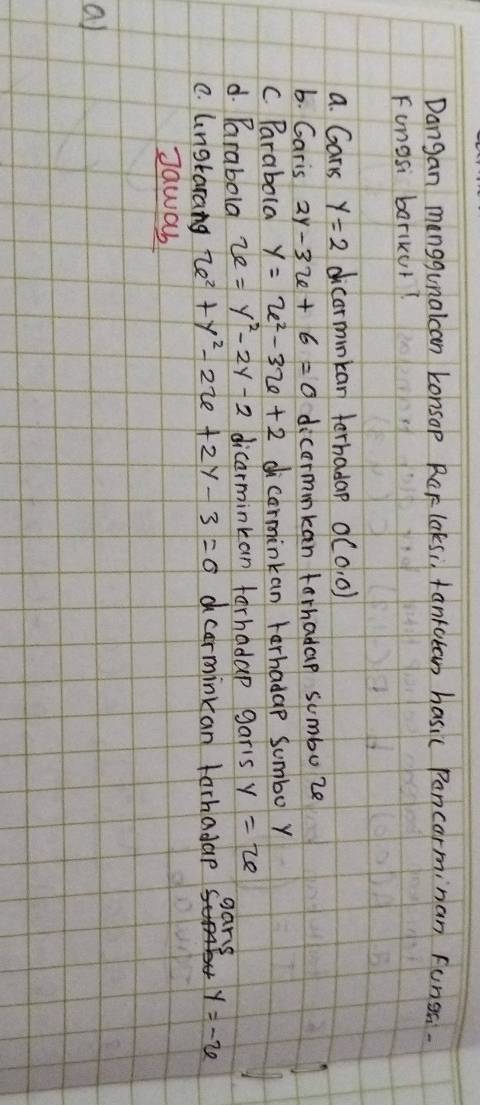 Dangan menggunakan konsap Raflaksi, tantukan hasil Pancarminan Fungsi-
Fungsi barikut!
a. Garis Y = 2 dicarminkan tarhadap O(0,0)
b. Garis 2Y - 3x + 6 = 0 dicarminkan tarhadap sumbu x
c. Parabola Y = x² - 3x + 2 dicarminkan tarhadap sumbu Y
d. Parabola x = Y² - 2Y - 2 dicarminkan tarhadap garis Y = x
e. lingkarang x² + Y² - 2x + 2Y - 3 = 0 dicarminkan tarhadap garis Y = -x
Jawab
a)